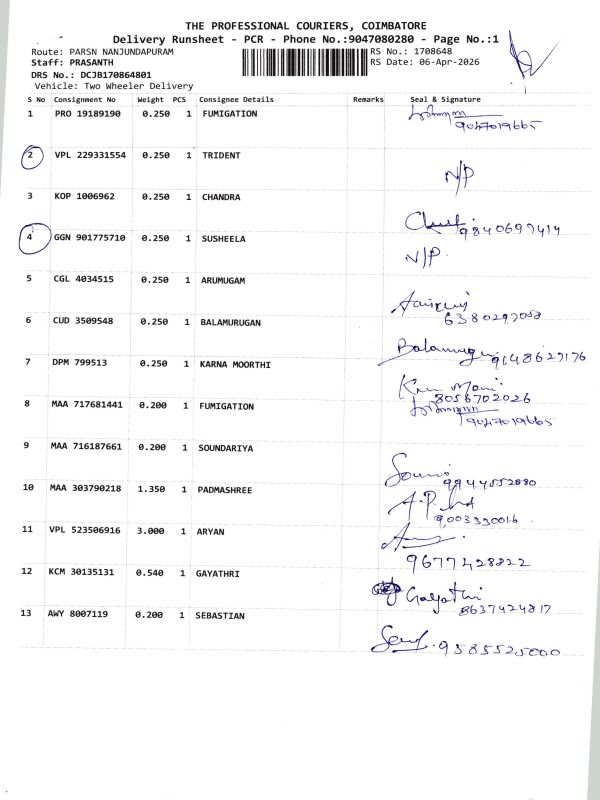 THE PROFESSIONAL COURIERS, COIMBATORE
Delivery Runsheet - PCR - Phone No.:9047080280 - Page No.:1
Route: PARSN NANJUNDAPURAM RS No.: 1708648
Staff: PRASANTH RS Date: 06-Apr-2026
DRS No.: DCJB170864801
Vehicle: Two Wheeler Delivery
S No Consignment No Weight PCS Consignee Details Remarks Seal & Signature
1 PRO 19189190 0.250 1 FUMIGATION
9047019665
2 VPL 229331554 0.250 1 TRIDENT
N/P
3 KOP 1006962 0.250 1 CHANDRA
9840697414
4 GGN 901775710 0.250 1 SUSHEELA
N/P.
5 CGL 4034515 0.250 1 ARUMUGAM
6380297058
6 CUD 3509548 0.250 1 BALAMURUGAN
Balamurugan 9148627176
7 DPM 799513 0.250 1 KARNA MOORTHI
8056702026
8 MAA 717681441 0.200 1 FUMIGATION
9047019665
9 MAA 716187661 0.200 1 SOUNDARIYA
9944552080
10 MAA 303790218 1.350 1 PADMASHREE
9003330016
11 VPL 523506916 3.000 1 ARYAN
9677428822
12 KCM 30135131 0.540 1 GAYATHRI
Gayathri
8637424817
13 AWY 8007119 0.200 1 SEBASTIAN
9585525000